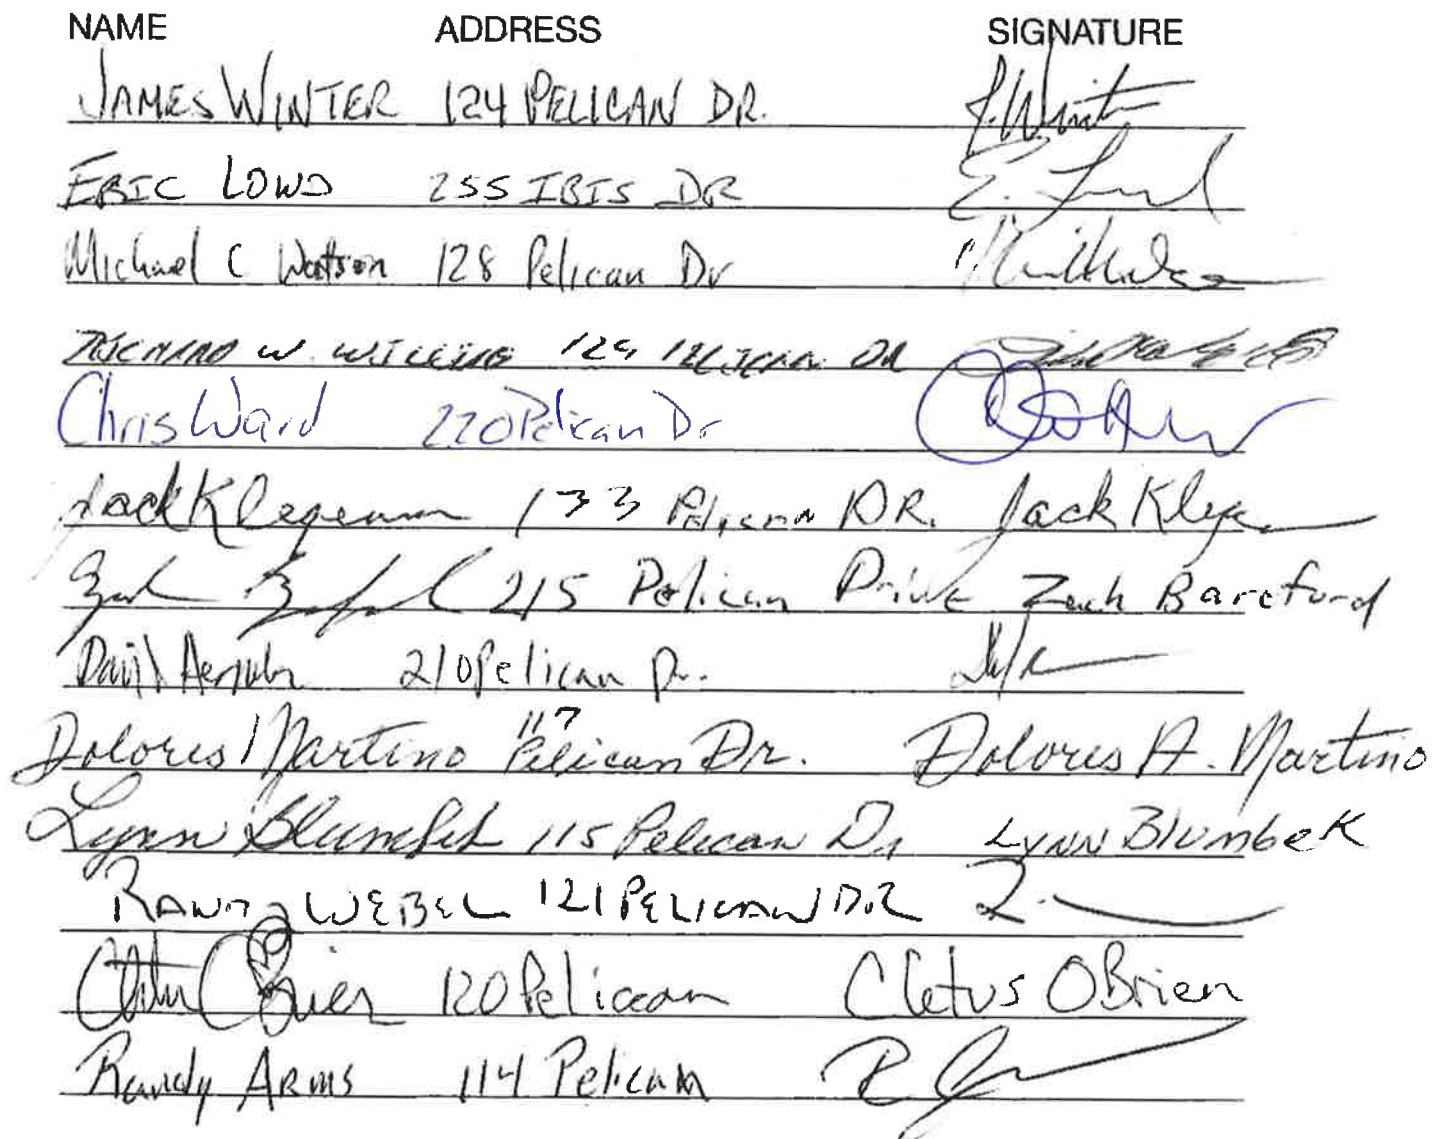 NAME ADDRESS SIGNATURE
JAMES WINTER 124 PELICAN DR. J. Winter
ERIC LOWD 255 IBIS DR E. Lowd
Michael C Watson 128 Pelican Dr
RICHARD W. 129 PELICAN DR
Chris Ward 220 Pelican Dr
Jack 133 Pelican DR. Jack
215 Pelican Drive Zach Bareford
David 210 Pelican Dr.
Dolores Martino 117 Pelican Dr. Dolores A. Martino
Lynn Blumbek 115 Pelican Dr LYNN BlumbeK
RANDY WEIBEL 121 PELICAN DR
120 Pelican Cletus OBrien
Randy ARMS 114 Pelican